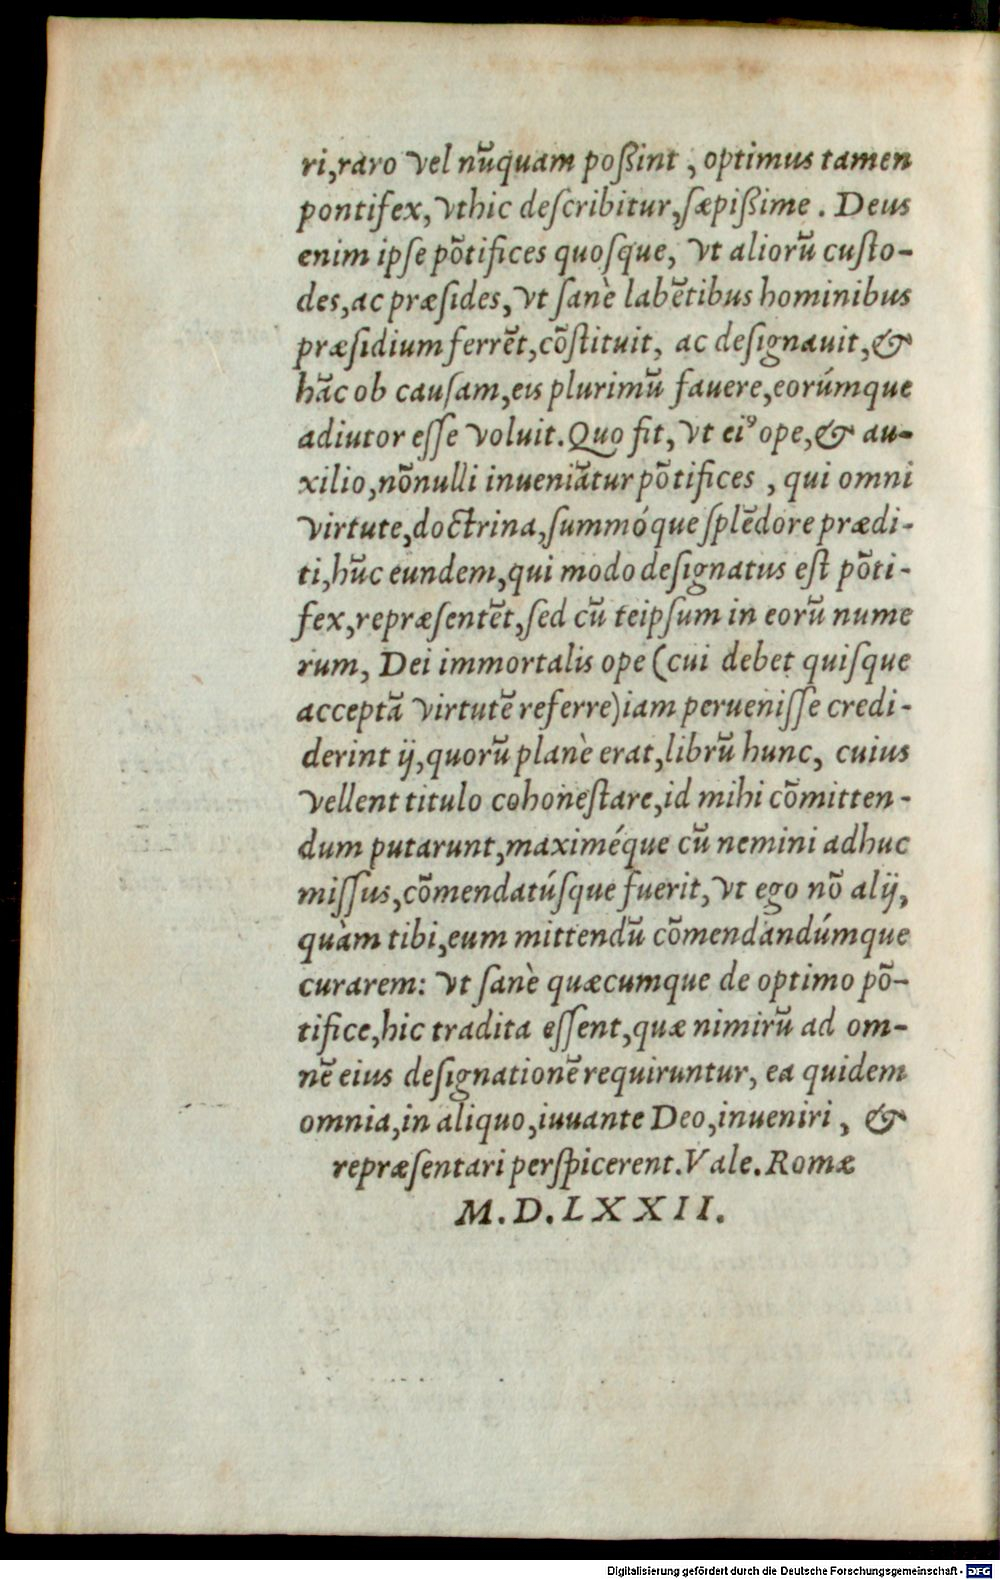 ri, raro vel nũquam poßint, optimus tamen
pontifex, vt hic deſcribitur, ſæpißime. Deus
enim ipſe põtifices quoſque, vt aliorũ cuſto-
des, ac præſides, vt ſanè labẽtibus hominibus
præſidium ferrẽt, cõſtituit, ac deſignauit, &
hãc ob cauſam, eis plurimũ fauere, eorúmque
adiutor eſſe voluit. Quo fit, vt eiꝰ ope, & au-
xilio, nõnulli inueniãtur põtifices, qui omni
virtute, doctrina, ſummóque ſplẽdore prædi-
ti, hũc eundem, qui modo deſignatus eſt põti-
fex, repræſentẽt, ſed cũ teipſum in eorũ nume
rum, Dei immortalis ope (cui debet quiſque
acceptã virtutẽ referre) iam perueniſſe credi-
derint ij, quorũ planè erat, librũ hunc, cuius
vellent titulo cohoneſtare, id mihi cõmitten-
dum putarunt, maximéque cũ nemini adhuc
miſſus, cõmendatúſque fuerit, vt ego nõ alij,
quàm tibi, eum mittendũ cõmendandúmque
curarem: vt ſanè quæcumque de optimo põ-
tifice, hic tradita eſſent, quæ nimirũ ad om-
nẽ eius deſignationẽ requiruntur, ea quidem
omnia, in aliquo, iuuante Deo, inueniri, &
repræſentari perſpicerent. Vale. Romæ
M. D. LXXII.
Digitalisierung gefördert durch die Deutsche Forschungsgemeinschaft - DFG